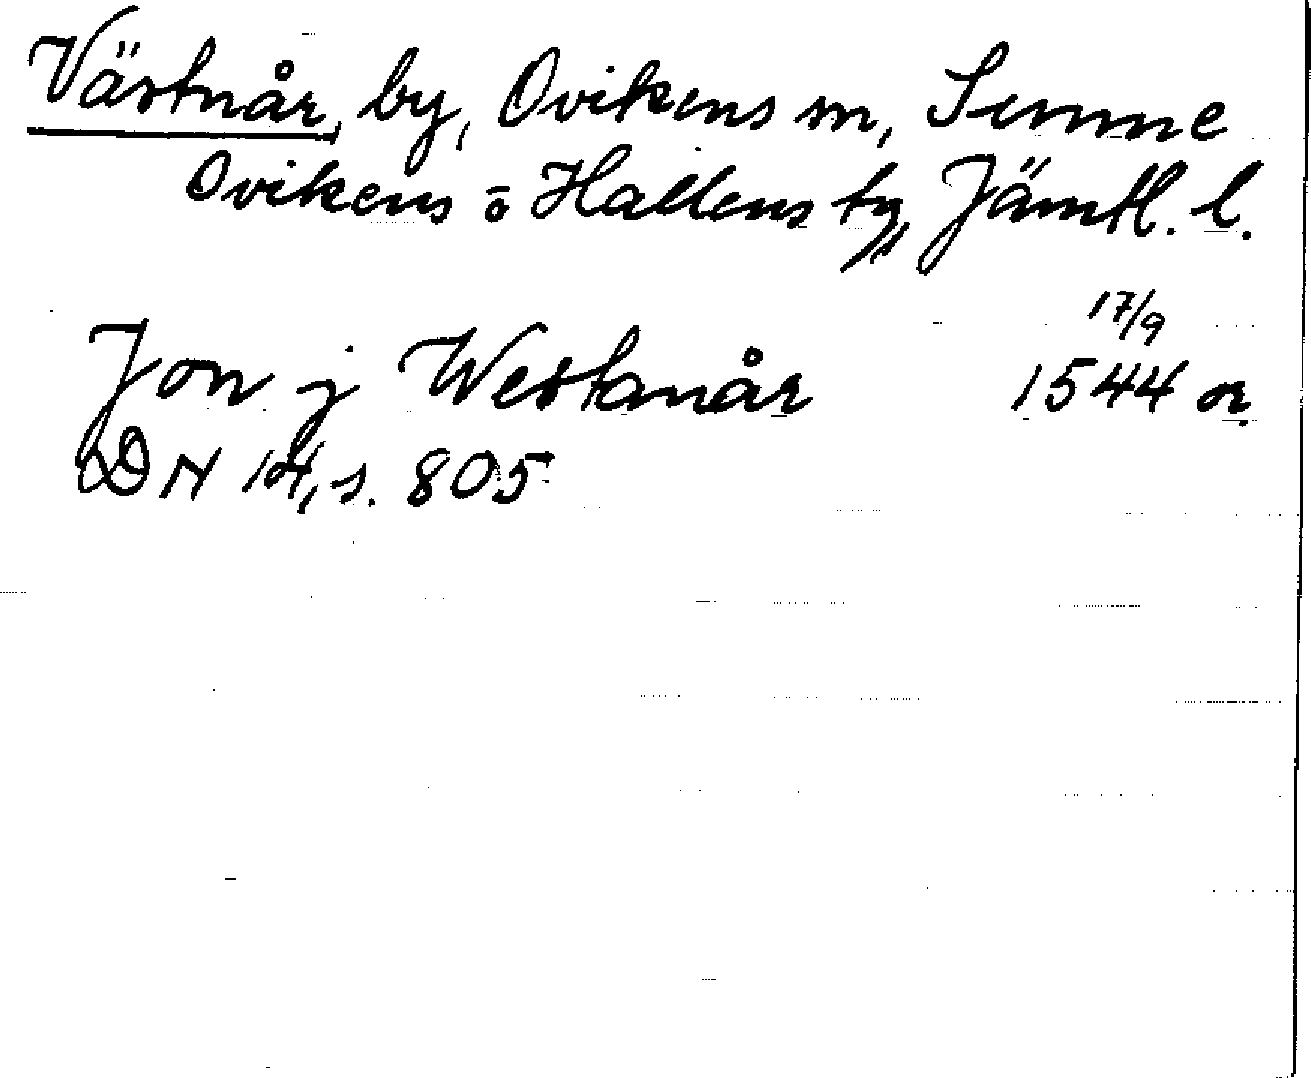 Västnår, by, Ovikens sn, Sunne
Ovikens o Hallens tg, Jämtl. l.
17/9
Jon j Westanår 1544 or.
DN 14, s. 805